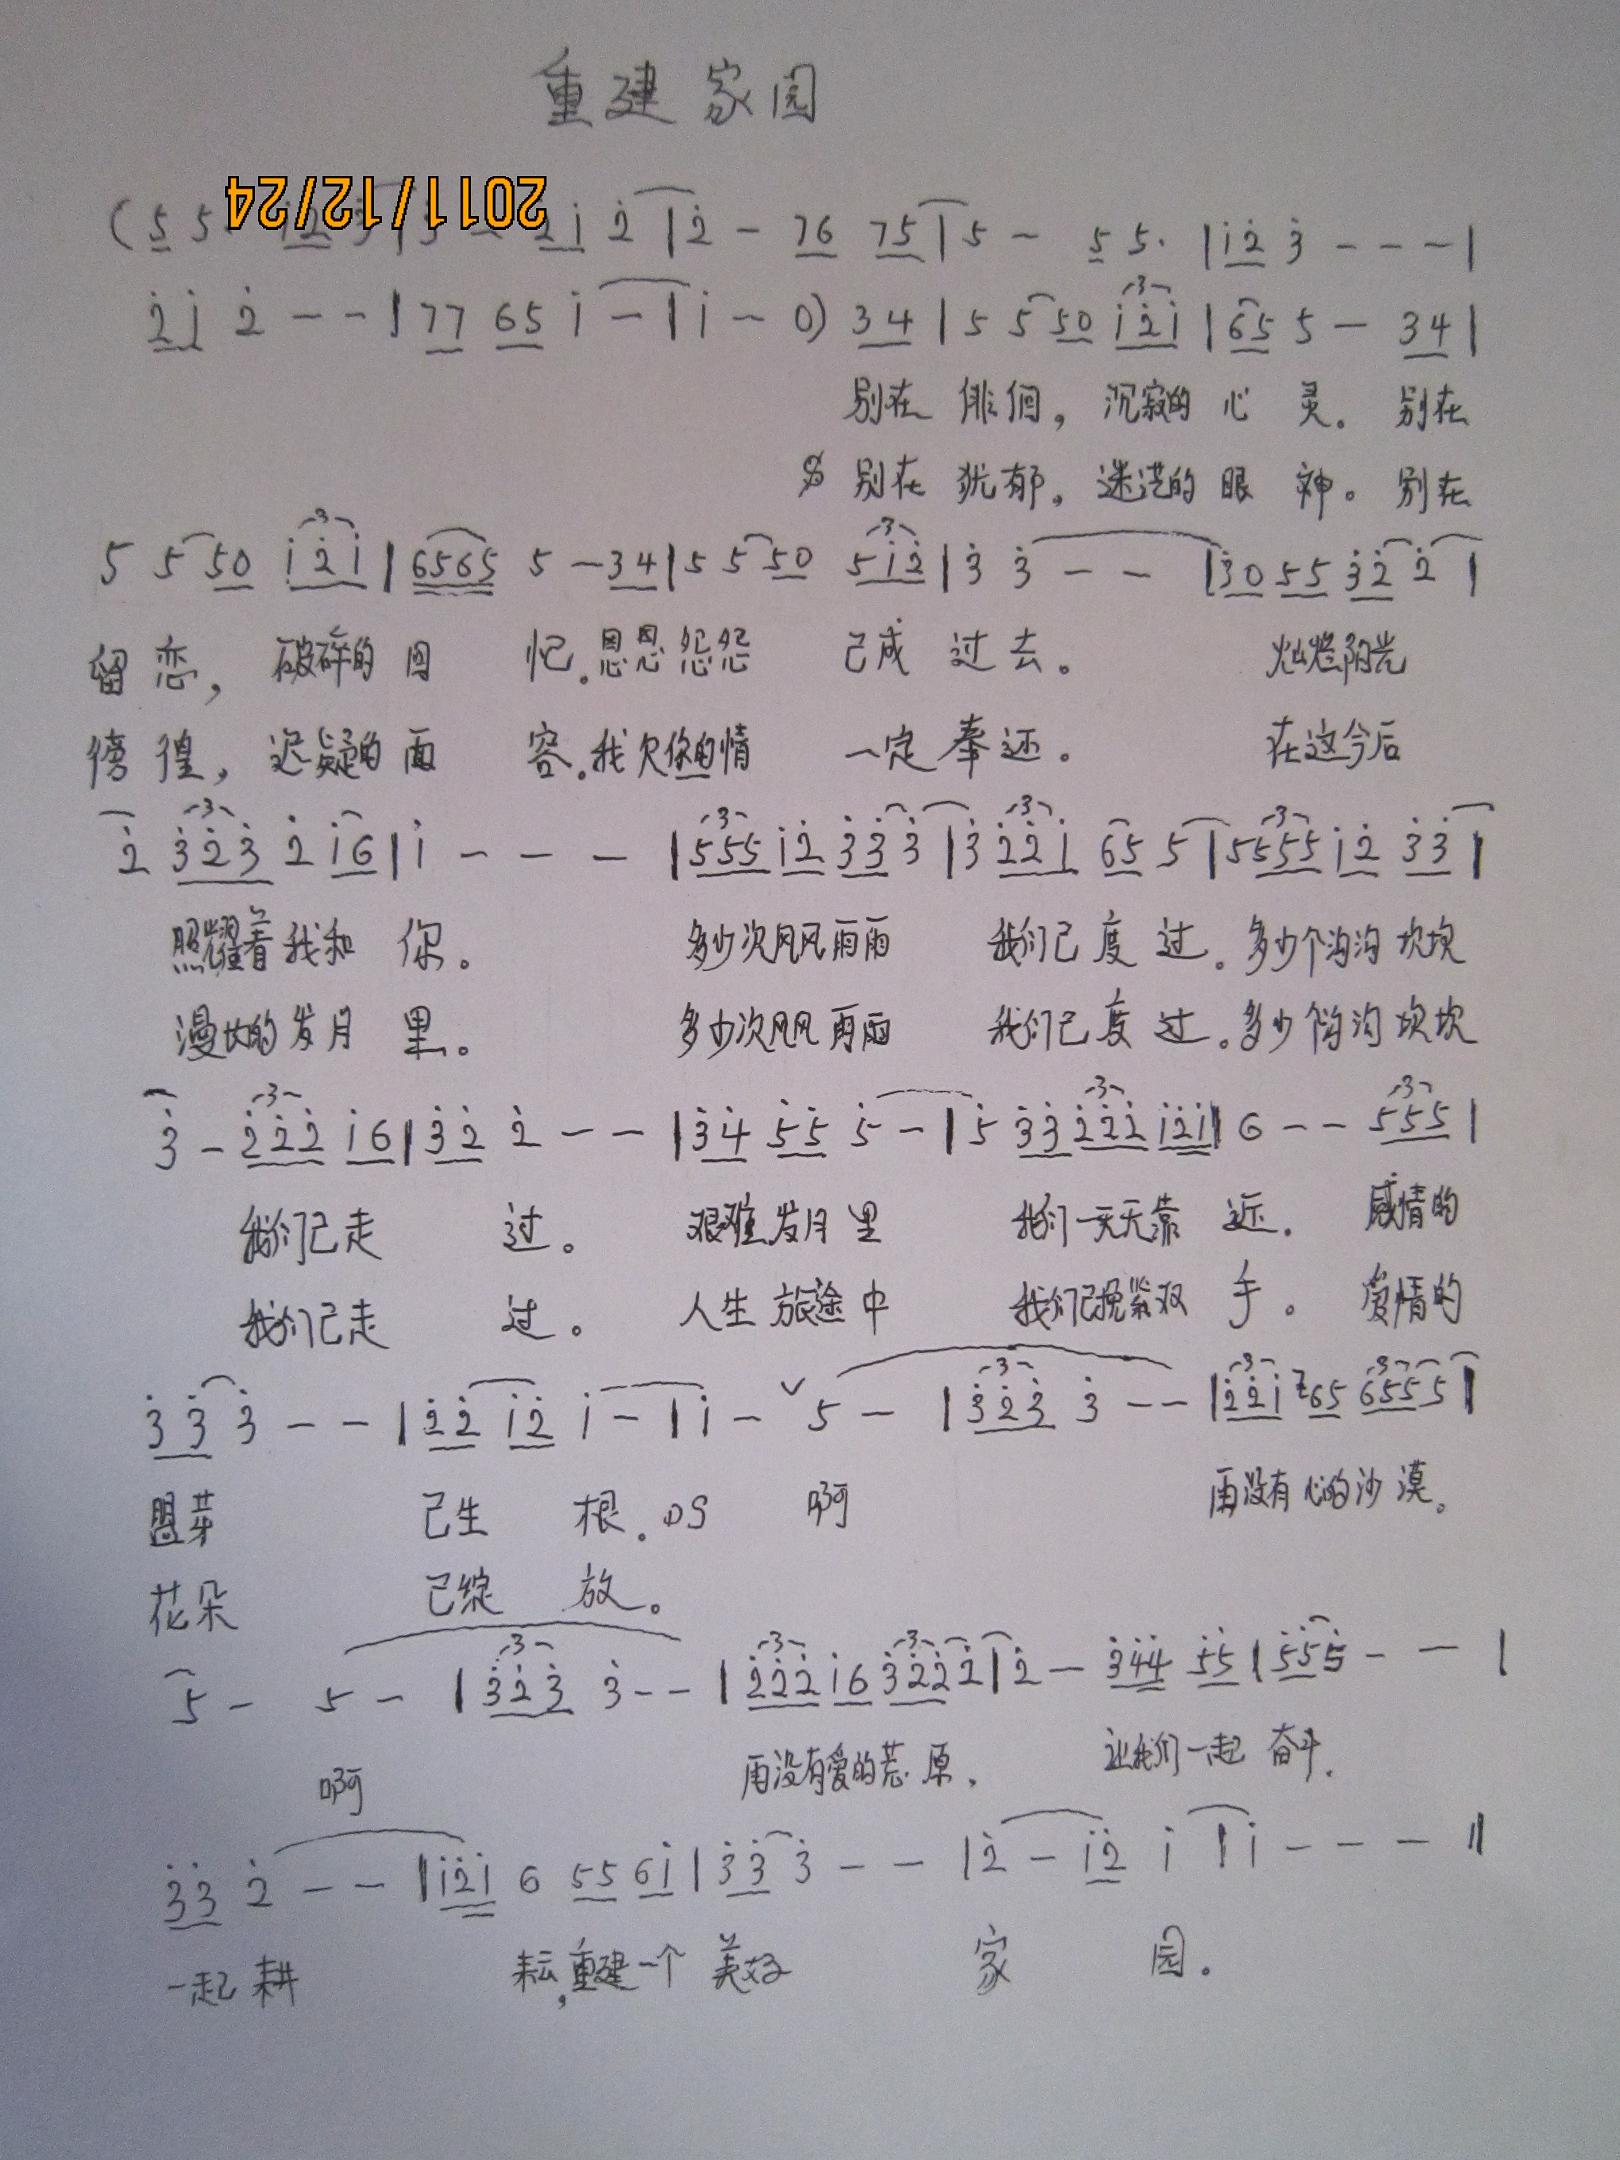 重建家园
2011/12/24
(5 5· i̇ 2̇ 3̇ | 3̇ - 2̇ i̇ 2̇ | 2̇ - 76 75 | 5 - 5 5· | i̇ 2̇ 3̇ - - - |
2̇ i̇ 2̇ - - | 77 65 i̇ - | i̇ - 0) 34 | 5 5 50 i̇ 2̇ i̇ | 65 5 - 34 |
别在 徘徊，沉寂的 心 灵。别在
别在 犹郁，迷茫的 眼 神。别在
5 5 50 i̇ 2̇ i̇ | 6565 5 - 34 | 5 5 50 5 i̇ 2̇ | 3̇ 3̇ - - | 3̇0 55 3̇2̇ 2̇ |
留恋，破碎的 回 忆.恩恩怨怨 己成 过去。 灿烂阳光
徬徨，迟疑的面 容.我欠你的情 一定奉还。 在这今后
2̇ 3̇2̇3̇ 2̇ i̇6 | i̇ - - - | 555 i̇2̇ 3̇3̇ 3̇ | 3̇ 2̇2̇i̇ 65 5 | 5555 i̇2̇ 3̇3̇ |
照耀着我和 你。 多少次风风雨雨 我们己度过.多少个沟沟坎坎
漫长的岁月 里。 多少次风风雨雨 我们己度过.多少个沟沟坎坎
3̇ - 2̇2̇2̇ i̇6 | 3̇2̇ 2̇ - - | 3̇4̇ 5̇5̇ 5̇ - | 5̇ 3̇3̇ 2̇2̇2̇ i̇2̇i̇ | 6 - - 555 |
我们己走 过。 艰难岁月里 我们一天天靠 近. 感情的
我们己走 过。 人生旅途中 我们己挽紧双 手。 爱情的
3̇ 3̇ 3̇ - - | 2̇2̇ i̇2̇ i̇ - | i̇ - ˅ 5 - | 3̇2̇3̇ 3̇ - - | 2̇2̇i̇ 65 655 5 |
盟芽 己生 根. DS 啊 再没有心的沙漠。
花朵 己绽 放。
5 - 5 - | 3̇2̇3̇ 3̇ - - | 2̇2̇2̇ i̇6 3̇2̇2̇ 2̇ | 2̇ - 3̇4̇4̇ 5̇5̇ | 5̇5̇5̇ - - |
啊 再没有爱的荒原， 让我们一起 奋斗.
3̇3̇ 2̇ - - | i̇2̇i̇ 6 55 6i̇ | 3̇3̇ 3̇ - - | 2̇ - i̇2̇ i̇ | i̇ - - - ||
一起耕 耘,重建一个 美好 家 园。